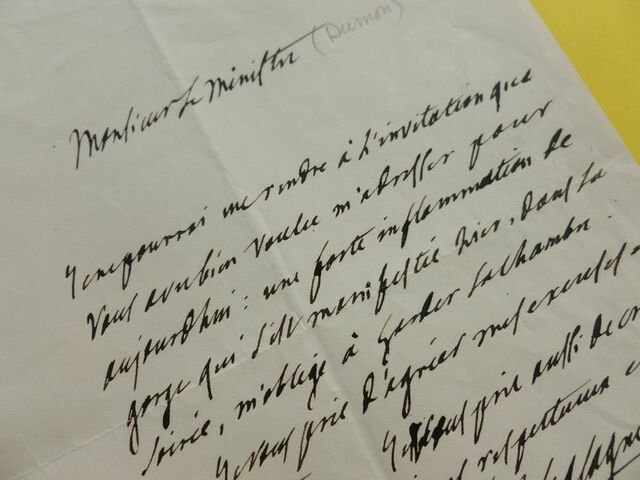 Monsieur Le Ministre (Dumon)
Je ne pourrai me rendre à L'invitation que
Vous avez bien voulu m'adresser pour
aujourdhui : une forte inflammation de
gorge qui s'est manifestée hier, dans la
soirée, m'oblige à garder La chambre.
Je vous prie d'agréer mes excuses
Je vous prie aussi de
respectueux